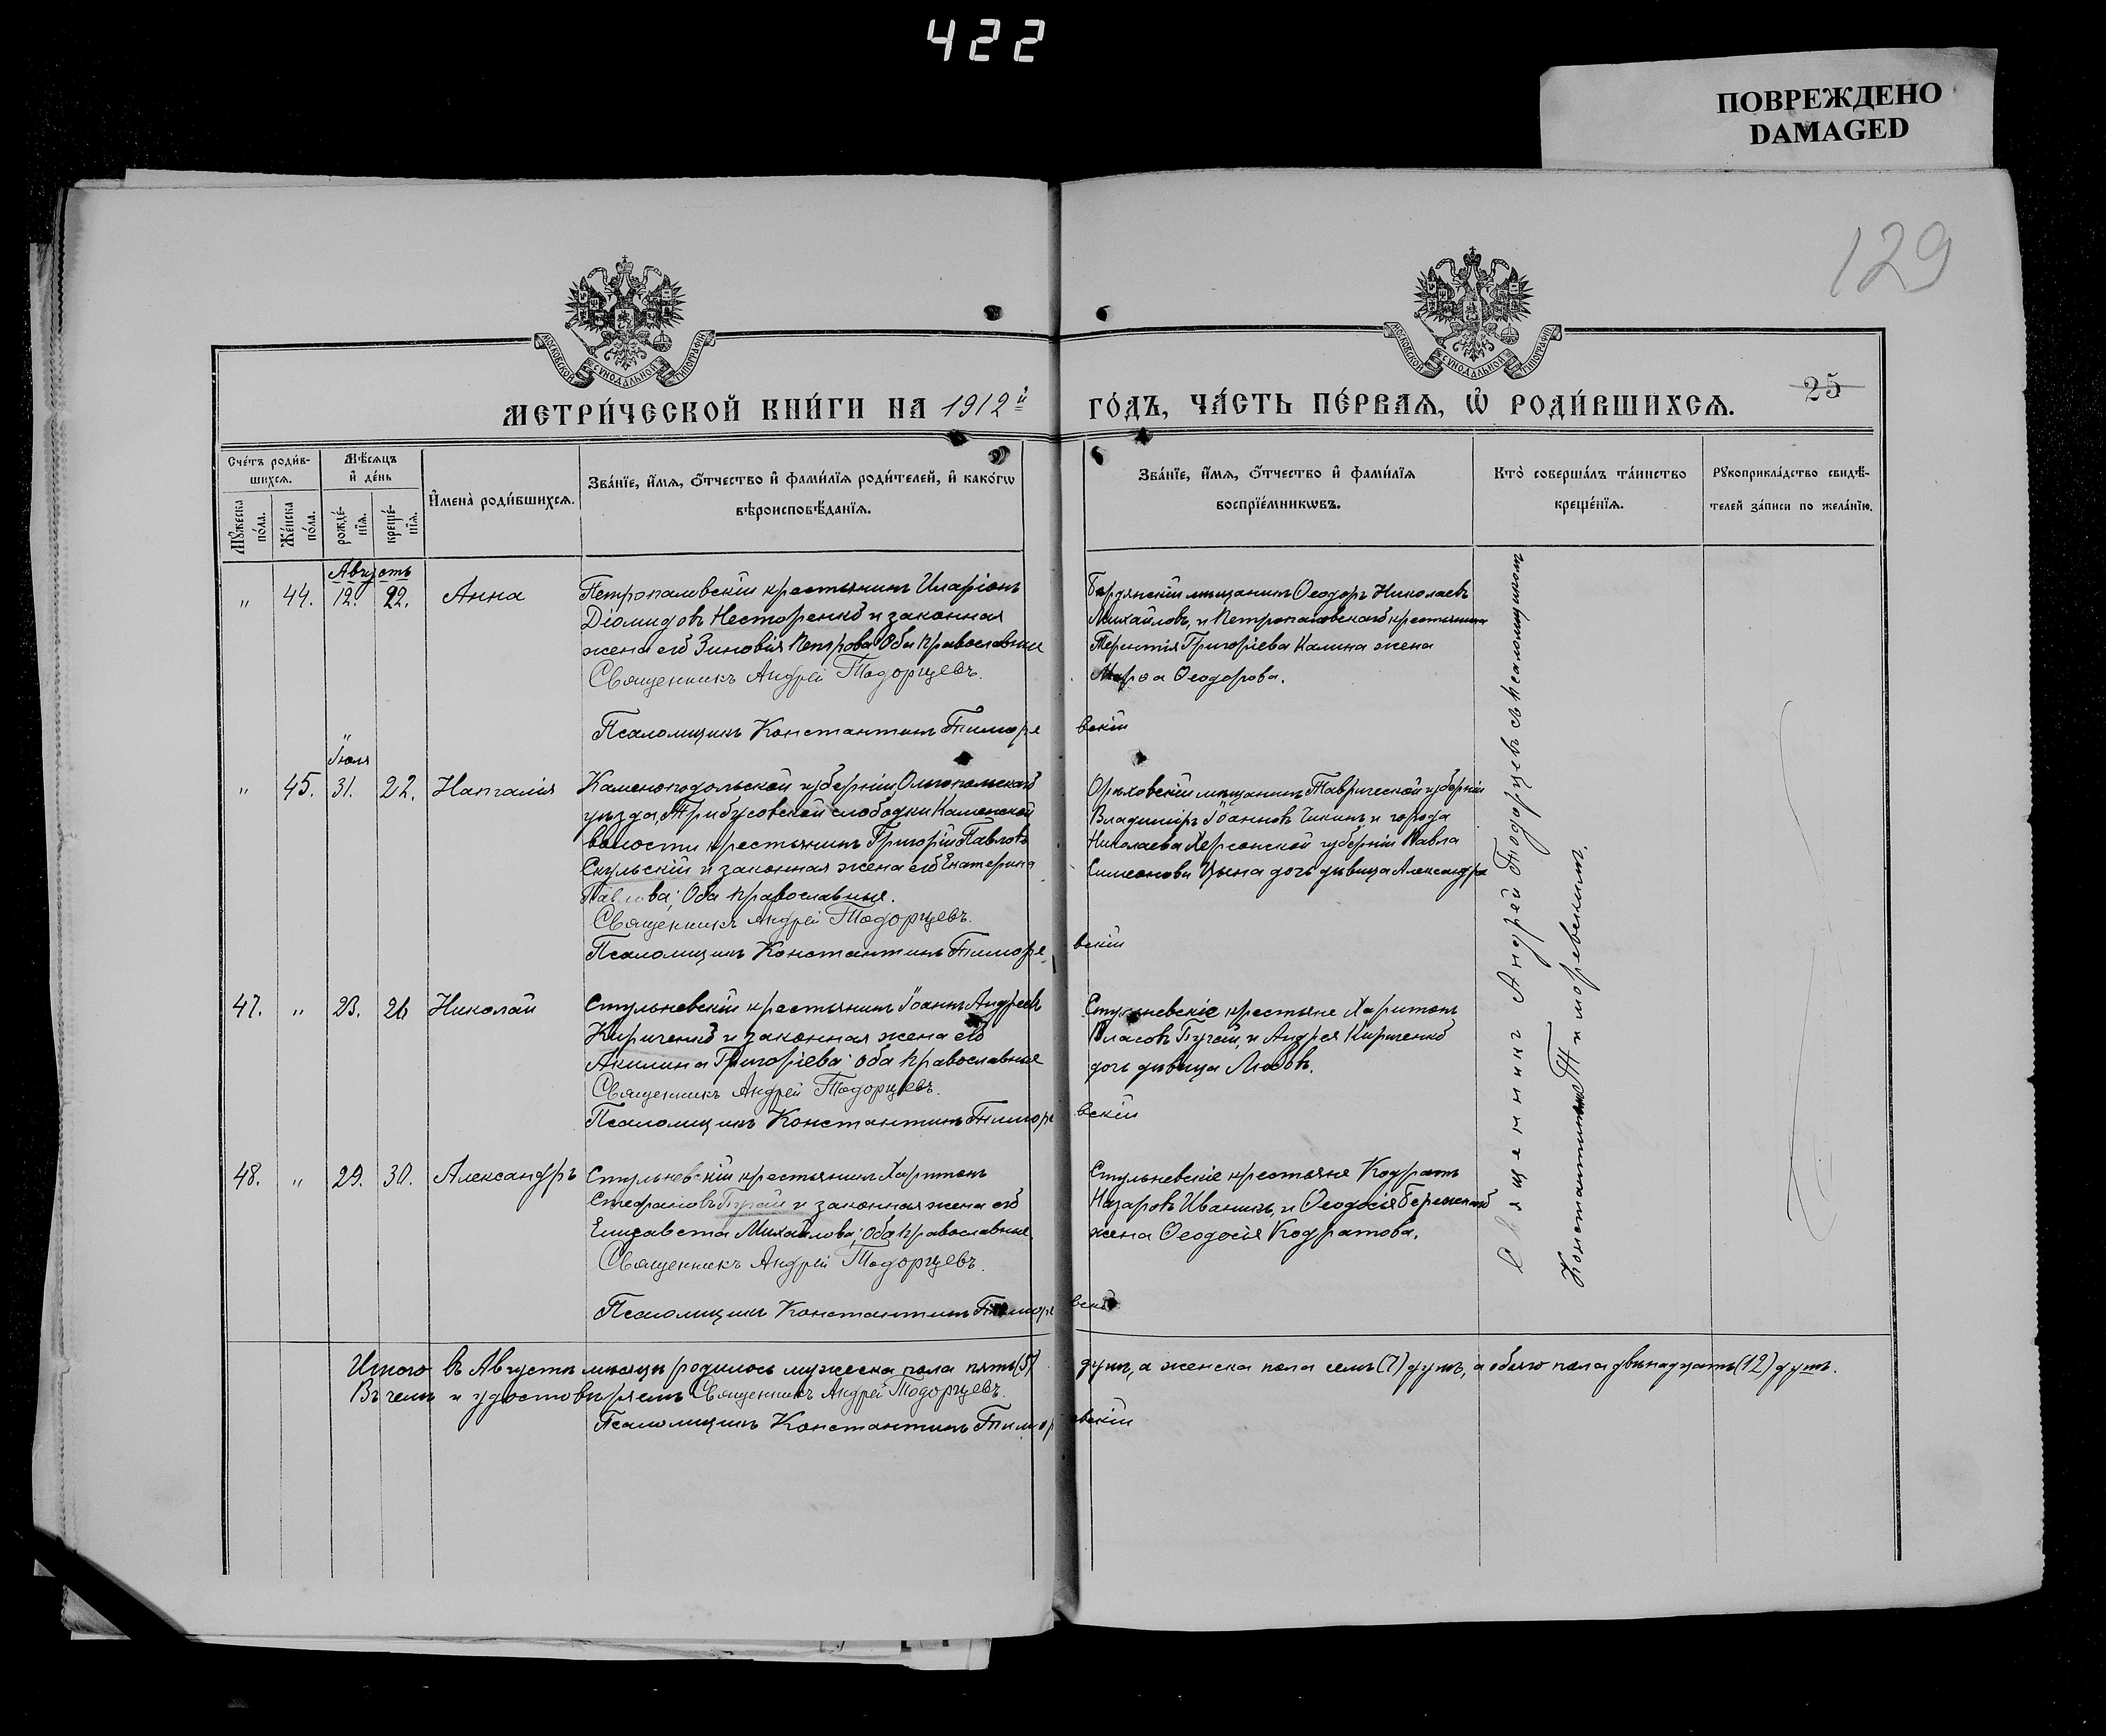 422
ПОВРЕЖДЕНО
DAMAGED
129
МОСКОВСКОЙ СѴНОДАЛЬНОЙ ТИПОГРАФІИ
МОСКОВСКОЙ СѴНОДАЛЬНОЙ ТИПОГРАФІИ
25
МЕТРИ́ЧЕСКОЙ КНИ́ГИ НА 1912й ГО́ДЪ, ЧА́СТЬ ПЕ́РВАѦ, Ѡ҆ РОДИ́ВШИХСѦ.
Сче́тъ роди́в-
шихсѧ.
Мѣ́сѧцъ
и҆ де́нь
Мꙋ́жеска
по́ла.
Же́нска
по́ла.
рожде́-
нїѧ.
креще́-
нїѧ.
И҆мена̀ роди́вшихсѧ.
Зва́нїе, и҆́мѧ, ѻ҆́тчество и҆ фами́лїѧ роди́телей, и҆ како́гѡ
вѣроисповѣ́данїѧ.
Зва́нїе, и҆́мѧ, ѻ҆́тчество и҆ фами́лїѧ
воспрїе́мникѡвъ.
Кто̀ соверша́лъ та́инство
креще́нїѧ.
Рꙋкоприкла́дство свидѣ́-
телей за́писи по жела́нїю.
Августъ
" 44. 12. 22. Анна
Петропавловскій крестьянинъ Иларіонъ
Діомидовъ Несторенко и законная
жена его Зиновія Петрова Оба православные
Священникъ Андрей Тодорцевъ.
Псаломщикъ Константинъ Тиморевскій
Бердянскій мѣщанинъ Ѳеодоръ Николаевъ
Михайловъ, и Петропавловскаго крестьянина
Терентія Григоріева Калина жена
Марѳа Ѳеодорова.
Іюля
" 45. 31. 22. Наталія
Каменоподольской губерніи, Ольгопольскаго
уѣзда, Трибусовской слободки Каменской
волости крестьянинъ Григорій Павловъ
Скульскій и законная жена его Екатерина
Павлова; Оба православные.
Священникъ Андрей Тодорцевъ.
Псаломщикъ Константинъ Тиморевскій
Орѣховскій мѣщанинъ Таврической губерніи
Владиміръ Іоанновъ Чикинъ и города
Николаева Херсонской губерніи Павла
Симеонова Цына дочь дѣвица Александра
47. " 23. 26 Николай
Стульневскій крестьянинъ Іоаннъ Андреевъ
Кириченко и законная жена его
Акилина Григоріева; оба православные
Священникъ Андрей Тодорцевъ.
Псаломщикъ Константинъ Тиморевскій
Стульневскіе крестьяне Харитонъ
Власовъ Бугай, и Андрея Кириченко
дочь дѣвица Любовь.
48. " 29. 30. Александръ
Стульневскій крестьянинъ Харитонъ
Стефановъ Бугай и законная жена его
Елисавета Михайлова; Оба православные
Священникъ Андрей Тодорцевъ.
Псаломщикъ Константинъ Тиморевскій
Стульневскіе крестьяне Кодратъ
Назаровъ Иванинъ, и Ѳеодосія Бережнаго
жена Ѳеодосія Кодратова.
Священникъ Андрей Тодорцевъ съ псаломщикомъ
Константиномъ Тиморевскимъ.
Итого въ Августѣ мѣсяцѣ родилось мужеска пола пять (5) душъ, а женска пола семь (7) душъ, а обоего пола двѣнадцать (12) душъ.
Въ чемъ и удостовѣряемъ Священникъ Андрей Тодорцевъ.
Псаломщикъ Константинъ Тиморевскій